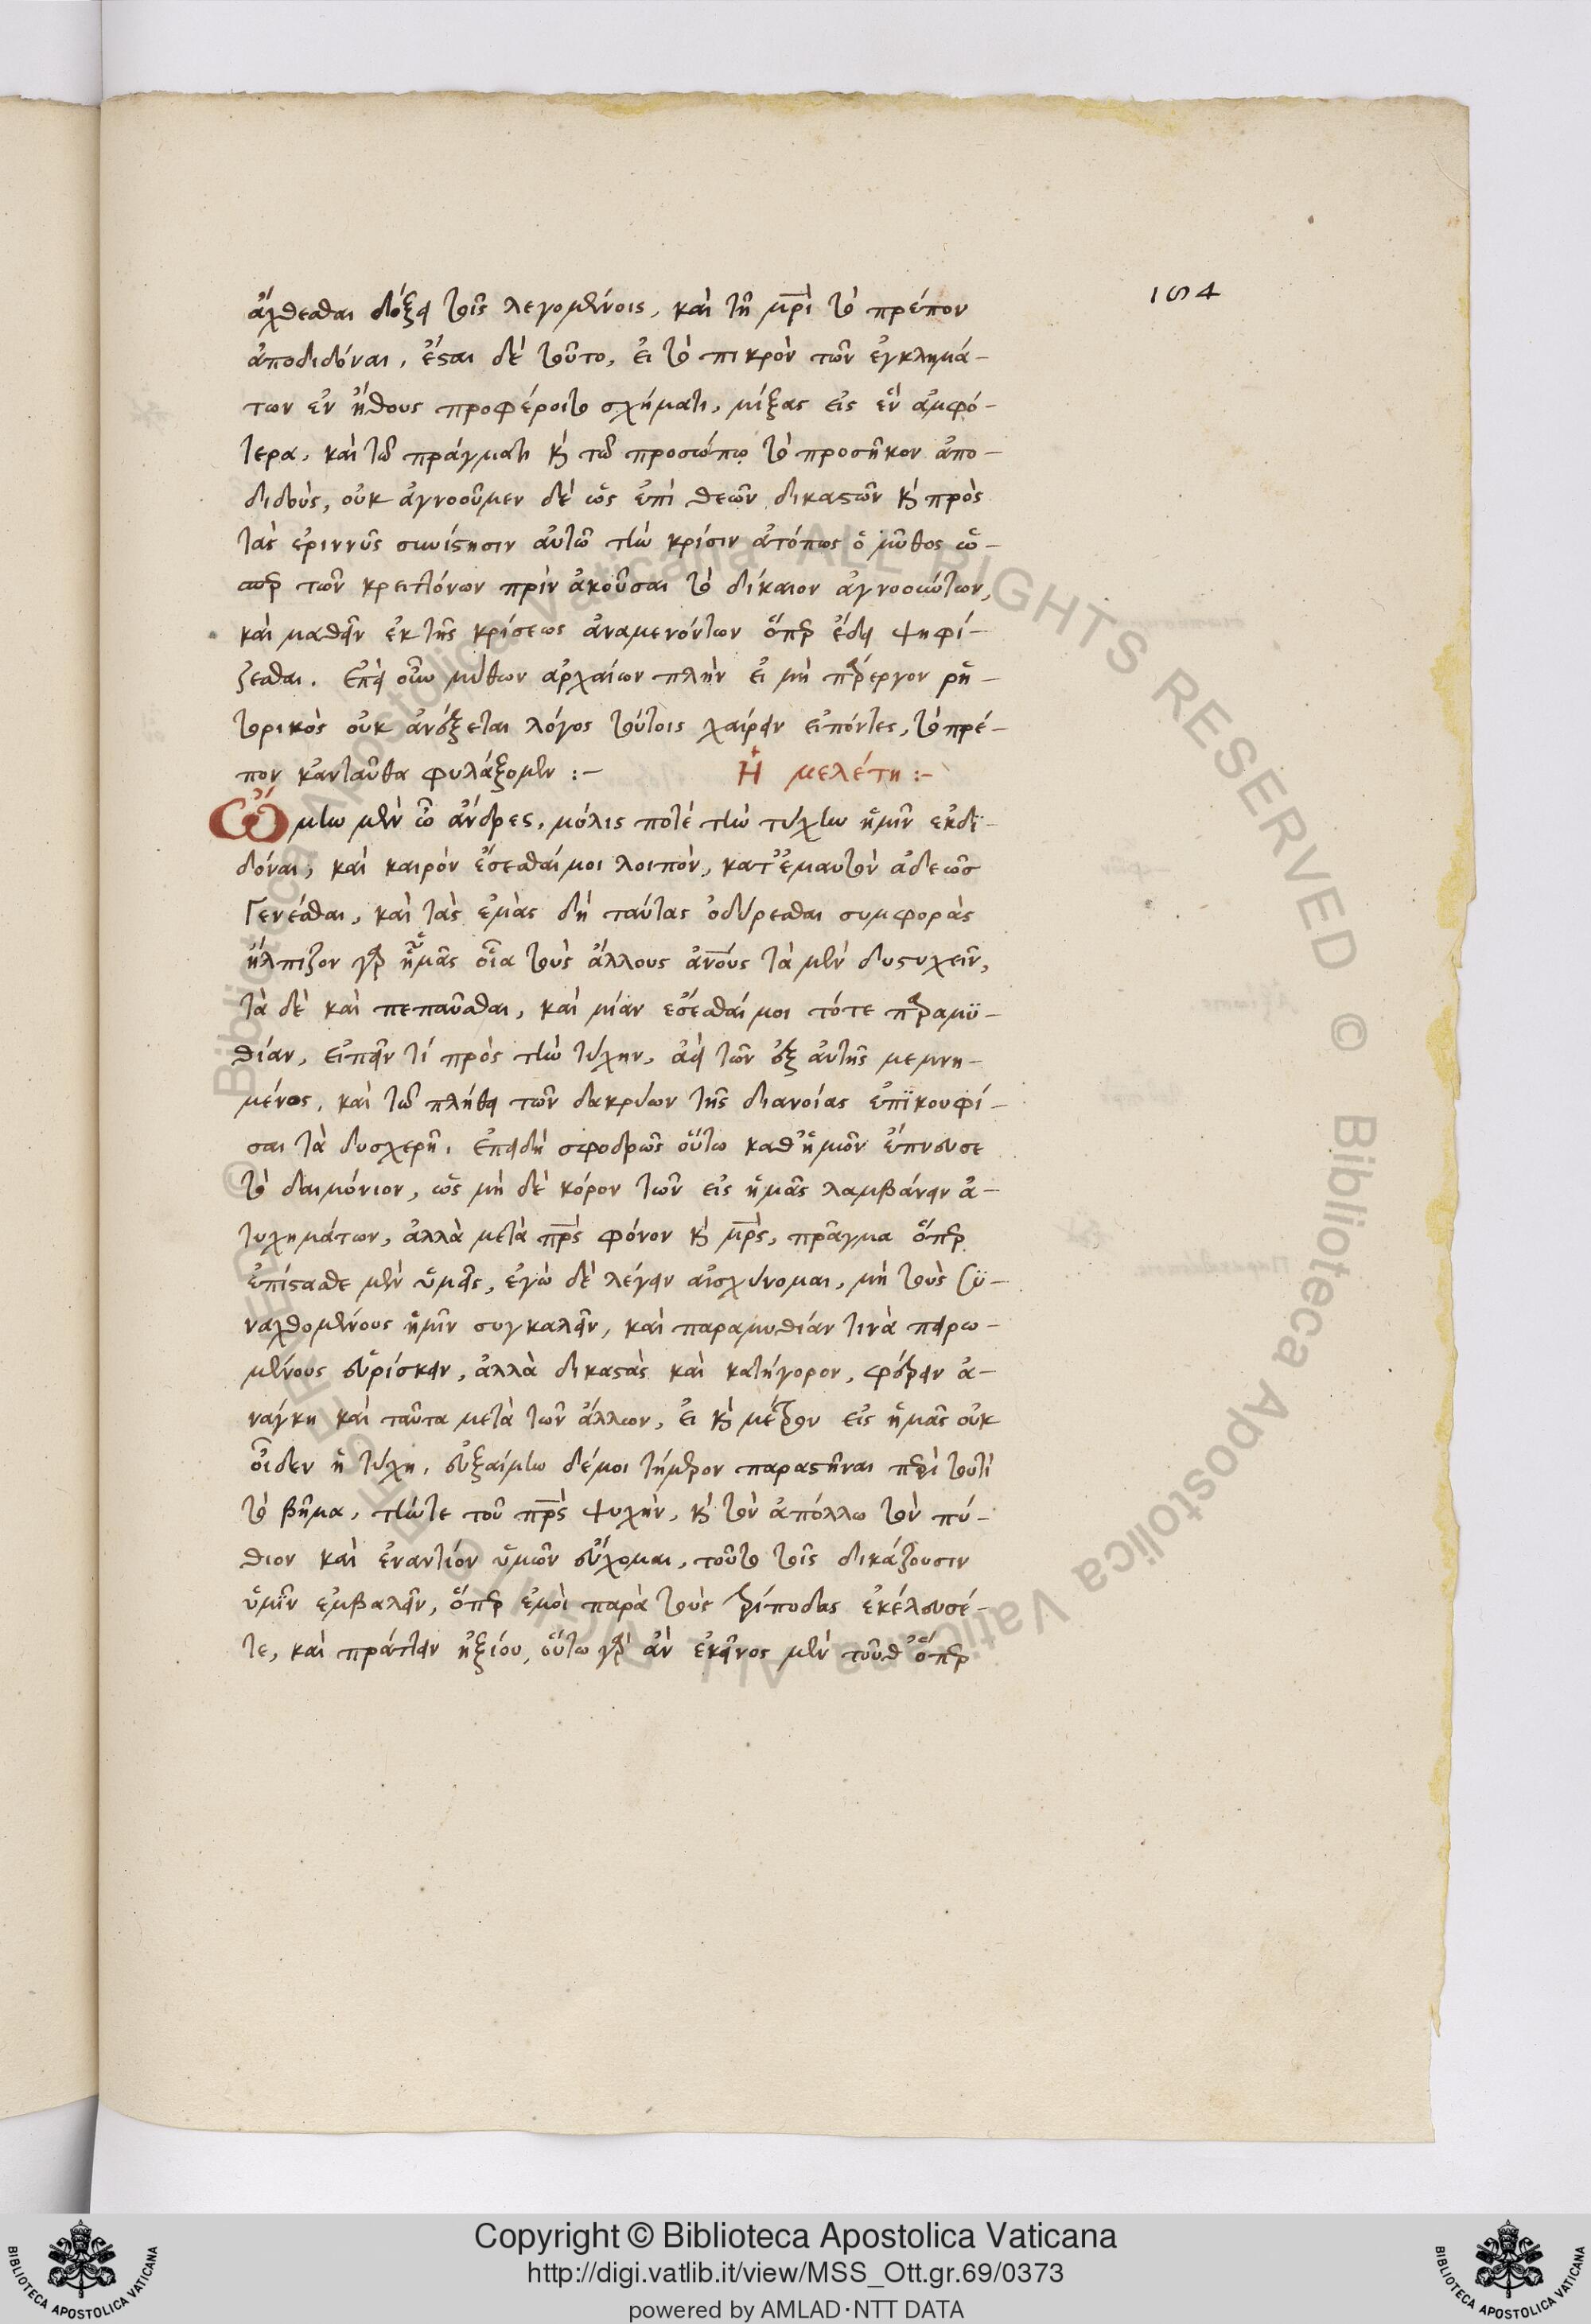 184
ἄχθεσθαι δόξει τοῖς λεγομένοις, καὶ τῇ μρὶ τὸ πρέπον
ἀποδιδόναι, ἔσται δὲ τοῦτο, εἰ τὸ πικρὸν τῶν ἐγκλημά-
των ἐν ἤθους προφέροιτο σχήματι, μίξας εἰς ἓν ἀμφό-
τερα, καὶ τῷ πράγματι κὶ τῷ προσώπῳ τὸ προσῆκον ἀπο-
διδούς, οὐκ ἀγνοοῦμεν δὲ ὡς ἐπὶ θεῶν δικαστῶν κὶ πρὸς
τὰς ἐριννῦς συνίστησιν αὐτῷ τὴν κρίσιν ἀτόπως ὁ μῦθος ὥ-
σπερ τῶν κρειττόνων πρὶν ἀκοῦσαι τὸ δίκαιον ἀγνοούντων,
καὶ μαθεῖν ἐκ τῆς κρίσεως ἀναμενόντων ὅπερ ἔδει ψηφί-
ζεσθαι. ἐπεὶ οὖν μύθων ἀρχαίων πλὴν εἰ μὴ πάρεργον ῥη-
τορικὸς οὐκ ἀνέξεται λόγος τούτοις χαίρειν εἰπόντες, τὸ πρέ-
πον κἀνταῦθα φυλάξομεν :-
Ἡ μελέτη :-
Ὤμην μὲν ὦ ἄνδρες, μόλις ποτὲ τὴν τύχην ἡμῖν ἐκδι-
δόναι, καὶ καιρὸν ἔσεσθαί μοι λοιπὸν, κατ' ἐμαυτὸν ἀδεῶς
Γενέσθαι, καὶ τὰς ἐμὰς δὴ ταύτας ὀδύρεσθαι συμφορὰς
ἤλπιζον γὰρ ἡμᾶς οἷα τοὺς ἄλλους ἀνους τὰ μὲν δυστυχεῖν,
τὰ δὲ καὶ πεπαῦσθαι, καὶ μίαν ἔσεσθαί μοι τότε παραμυ-
θίαν, εἰπεῖν τί πρὸς τὴν τύχην, ἀεὶ τῶν ἐξ αὐτῆς μεμνη-
μένος, καὶ τῷ πλήθει τῶν δακρύων τῆς διανοίας ἐπικουφί-
σαι τὰ δυσχερῆ. ἐπειδὴ σφοδρῶς οὕτω καθ' ἡμῶν ἔπνευσε
τὸ δαιμόνιον, ὡς μὴ δὲ κόρον τῶν εἰς ἡμᾶς λαμβάνειν ἀ-
τυχημάτων, ἀλλὰ μετὰ πρς φόνον κὶ μρς, πρᾶγμα ὅπερ
ἐπίστασθε μὲν ὑμεῖς, ἐγὼ δὲ λέγειν αἰσχύνομαι, μὴ τοὺς Συ-
ναχθομένους ἡμῖν συγκαλεῖν, καὶ παραμυθίαν τινὰ πειρω-
μένους εὑρίσκειν, ἀλλὰ δικαστὰς καὶ κατήγορον, φέρειν ἀ-
νάγκη καὶ ταῦτα μετὰ τῶν ἄλλων, εἰ κὶ μέτρον εἰς ἡμᾶς οὐκ
οἶδεν ἡ τύχη. εὐξαίμην δέ μοι τήμερον παραστῆναι περὶ τουτὶ
τὸ βῆμα, τήν τε τοῦ πρς ψυχὴν, κὶ τὸν ἀπόλλω τὸν πύ-
θιον καὶ ἐναντίον ὑμῶν εὔχομαι, τοῦτο τοῖς δικάζουσιν
ὑμῖν ἐμβαλεῖν, ὅπερ ἐμοὶ παρὰ τοὺς τρίποδας ἐκέλευσέ-
τε, καὶ πράττειν ἠξίου, οὕτω γὰρ ἂν ἐκεῖνος μὲν τοῦθ' ὅπερ
Copyright © Biblioteca Apostolica Vaticana
http://digi.vatlib.it/view/MSS_Ott.gr.69/0373
powered by AMLAD·NTT DATA